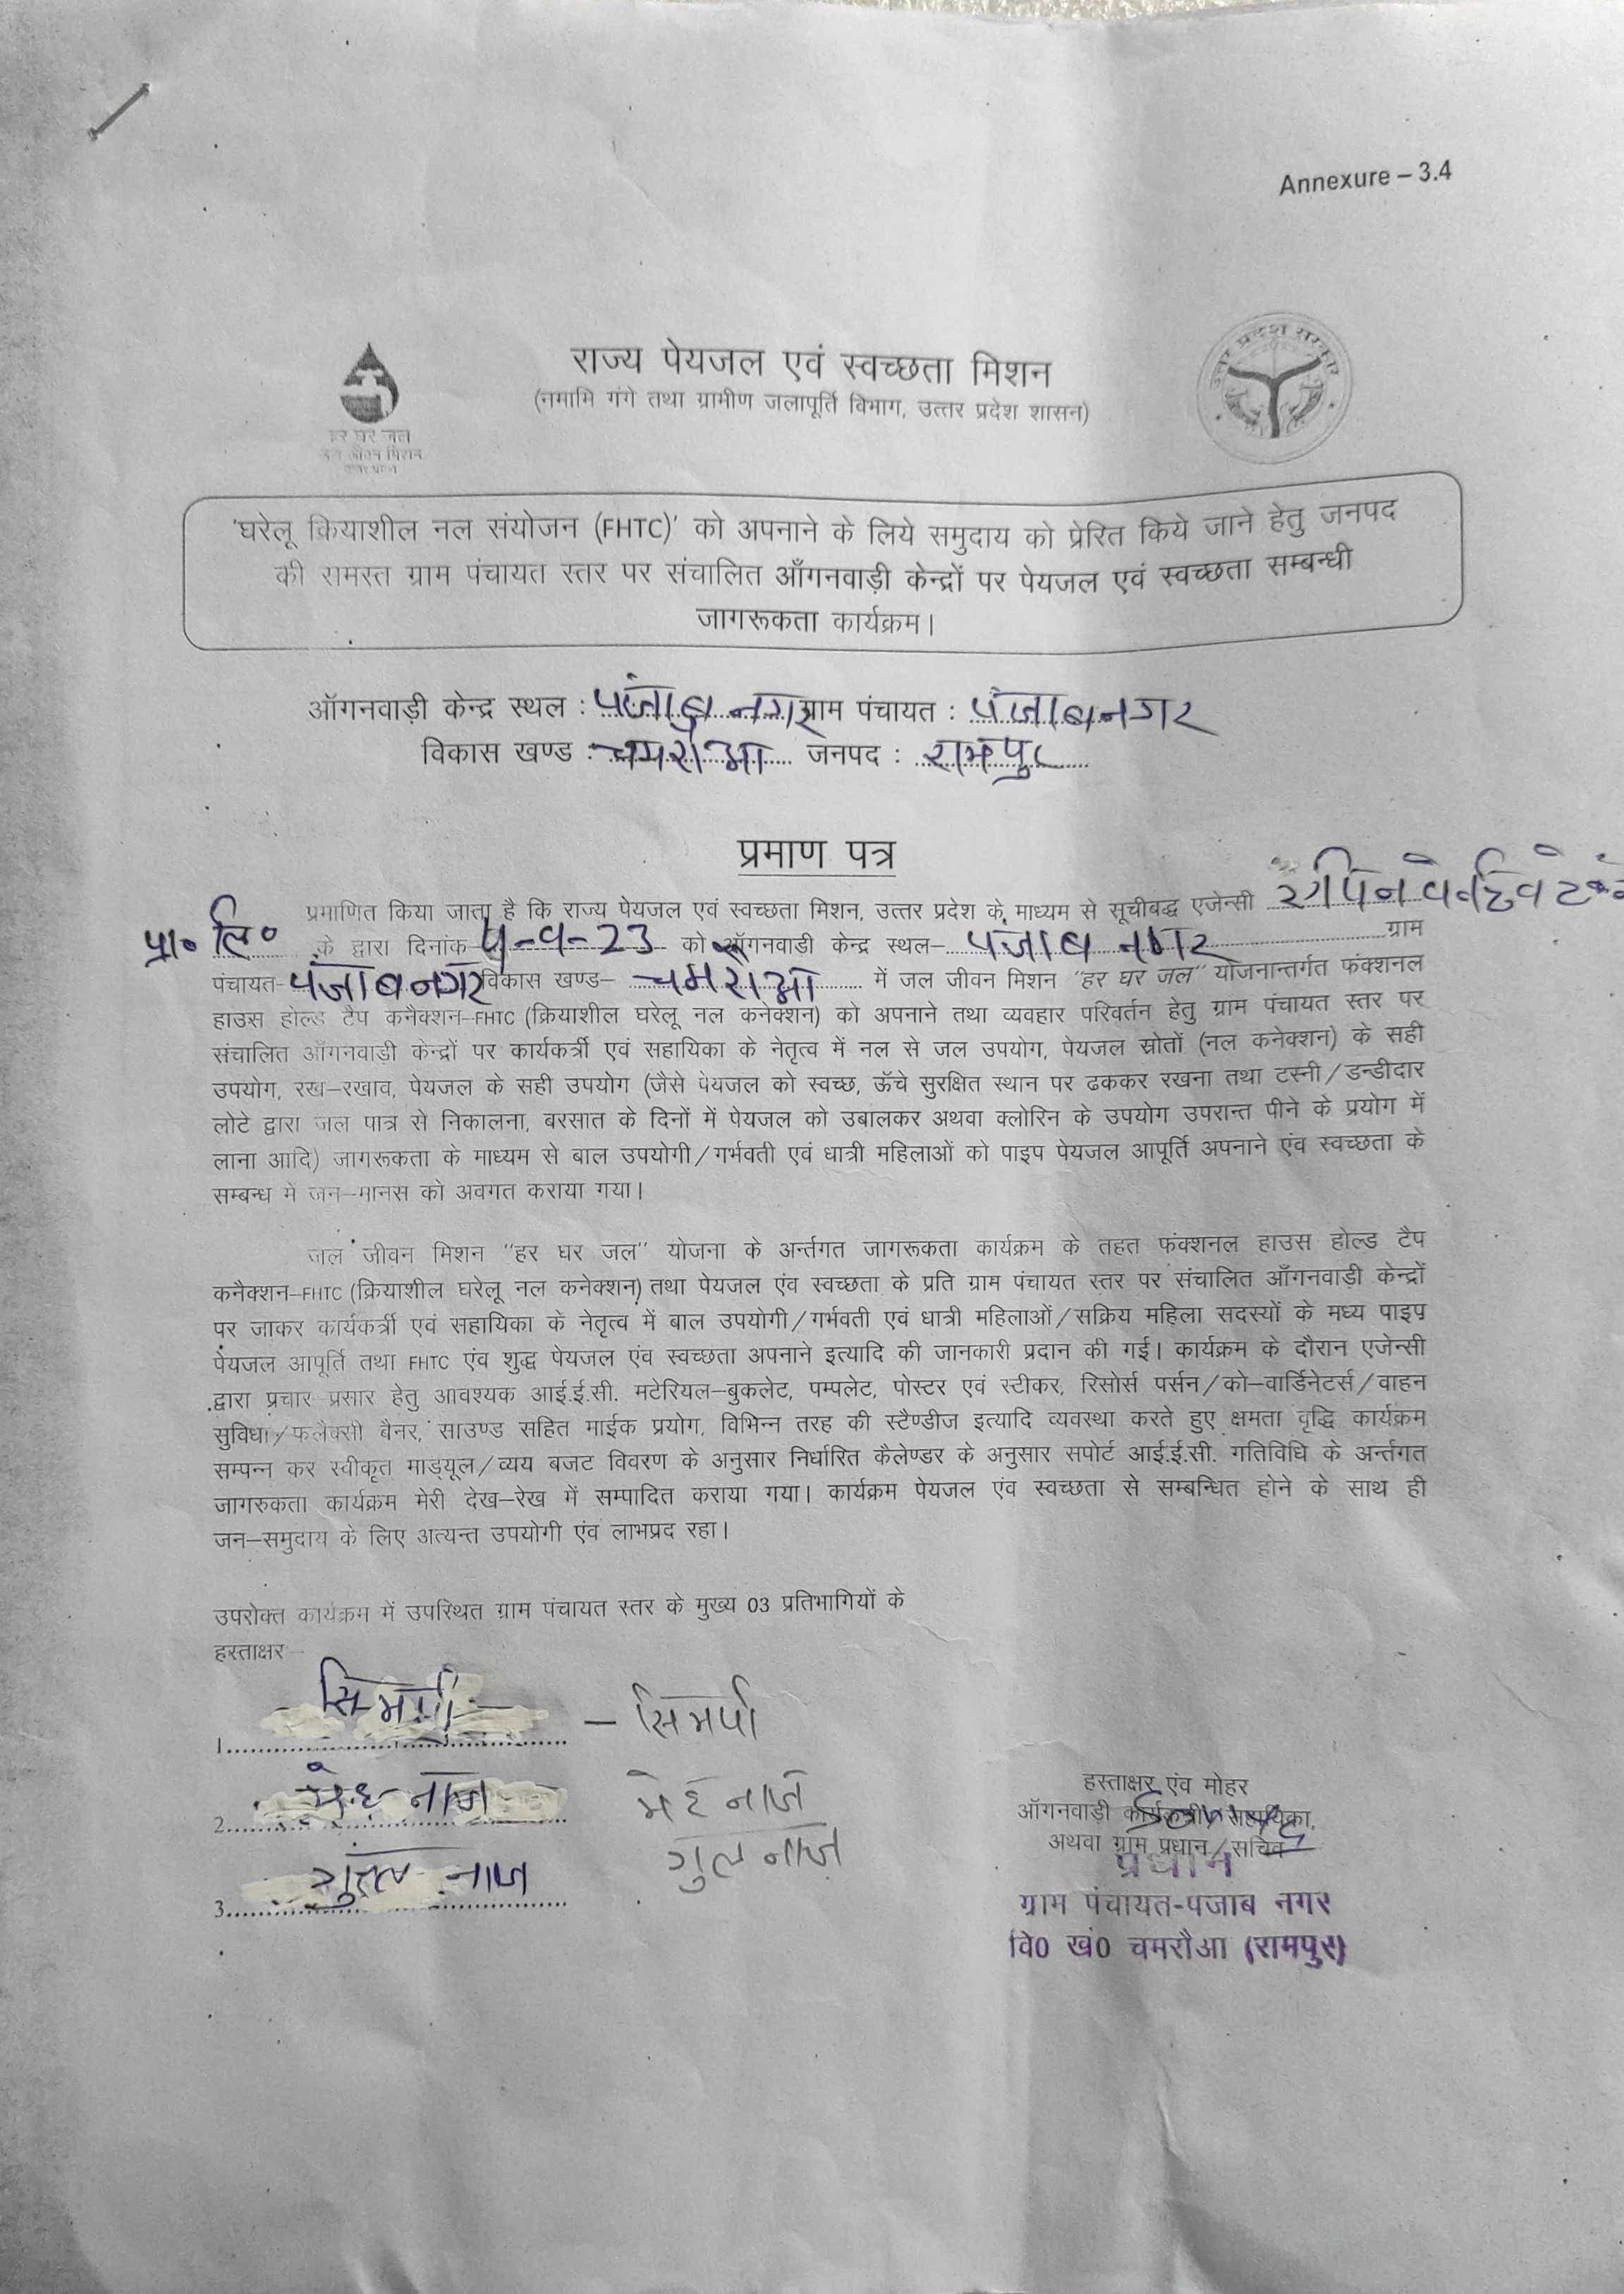 Annexure – 3.4
राज्य पेयजल एवं स्वच्छता मिशन
(नमामि गंगे तथा ग्रामीण जलापूर्ति विभाग, उत्तर प्रदेश शासन)
हर घर जल
जल जीवन मिशन
उत्तर प्रदेश सरकार
'घरेलू क्रियाशील नल संयोजन (FHTC)' को अपनाने के लिये समुदाय को प्रेरित किये जाने हेतु जनपद
की समस्त ग्राम पंचायत स्तर पर संचालित आँगनवाड़ी केन्द्रों पर पेयजल एवं स्वच्छता सम्बन्धी
जागरूकता कार्यक्रम।
ऑगनवाड़ी केन्द्र स्थल : पंजाबु नगर ग्राम पंचायत : पंजाबनगर
विकास खण्ड : चमरौआ जनपद : रामपुर
प्रमाण पत्र
प्रमाणित किया जाता है कि राज्य पेयजल एवं स्वच्छता मिशन, उत्तर प्रदेश के माध्यम से सूचीबद्ध एजेन्सी
प्रा० लि० के द्वारा दिनांक- -23 को ऑगनवाड़ी केन्द्र स्थल- पंजाब नगर ग्राम
पंचायत- पंजाबनगर विकास खण्ड- चमरौआ में जल जीवन मिशन "हर घर जल" योजनान्तर्गत फंक्शनल
हाउस होल्ड टैप कनैक्शन-FHTC (क्रियाशील घरेलू नल कनेक्शन) को अपनाने तथा व्यवहार परिवर्तन हेतु ग्राम पंचायत स्तर पर
संचालित आँगनवाड़ी केन्द्रों पर कार्यकर्त्री एवं सहायिका के नेतृत्व में नल से जल उपयोग, पेयजल स्रोतों (नल कनेक्शन) के सही
उपयोग, रख-रखाव, पेयजल के सही उपयोग (जैसे पेयजल को स्वच्छ, ऊँचे सुरक्षित स्थान पर ढककर रखना तथा टस्नी/डन्डीदार
लोटे द्वारा जल पात्र से निकालना, बरसात के दिनों में पेयजल को उबालकर अथवा क्लोरिन के उपयोग उपरान्त पीने के प्रयोग में
लाना आदि) जागरूकता के माध्यम से बाल उपयोगी/गर्भवती एवं धात्री महिलाओं को पाइप पेयजल आपूर्ति अपनाने एंव स्वच्छता के
सम्बन्ध में जन-मानस को अवगत कराया गया।
जल जीवन मिशन "हर घर जल" योजना के अर्न्तगत जागरूकता कार्यक्रम के तहत फंक्शनल हाउस होल्ड टैप
कनैक्शन-FHTC (क्रियाशील घरेलू नल कनेक्शन) तथा पेयजल एंव स्वच्छता के प्रति ग्राम पंचायत स्तर पर संचालित आँगनवाड़ी केन्द्रों
पर जाकर कार्यकर्त्री एवं सहायिका के नेतृत्व में बाल उपयोगी/गर्भवती एवं धात्री महिलाओं/सक्रिय महिला सदस्यों के मध्य पाइप
पेयजल आपूर्ति तथा FHTC एंव शुद्ध पेयजल एंव स्वच्छता अपनाने इत्यादि की जानकारी प्रदान की गई। कार्यक्रम के दौरान एजेन्सी
द्वारा प्रचार प्रसार हेतु आवश्यक आई.ई.सी. मटेरियल-बुकलेट, पम्पलेट, पोस्टर एवं स्टीकर, रिसोर्स पर्सन/को-वार्डिनेटर्स/वाहन
सुविधा/फलैक्सी बैनर, साउण्ड सहित माईक प्रयोग, विभिन्न तरह की स्टैण्डीज इत्यादि व्यवस्था करते हुए क्षमता वृद्धि कार्यक्रम
सम्पन्न कर स्वीकृत माड्यूल/व्यय बजट विवरण के अनुसार निर्धारित कैलेण्डर के अनुसार सपोर्ट आई.ई.सी. गतिविधि के अर्न्तगत
जागरुकता कार्यक्रम मेरी देख-रेख में सम्पादित कराया गया। कार्यक्रम पेयजल एंव स्वच्छता से सम्बन्धित होने के साथ ही
जन-समुदाय के लिए अत्यन्त उपयोगी एंव लाभप्रद रहा।
उपरोक्त कार्यक्रम में उपस्थित ग्राम पंचायत स्तर के मुख्य 03 प्रतिभागियों के
हस्ताक्षर-
1. सिमर्पा - सिमर्पा
2. मेह नाज मेह नाज
3. गुल नाज गुल नाज
हस्ताक्षर एंव मोहर
ऑगनवाड़ी कार्यकर्त्री/सहायिका,
अथवा ग्राम प्रधान/सचिव
प्रधान
ग्राम पंचायत-पजाब नगर
वि0 खं0 चमरौआ (रामपुर)